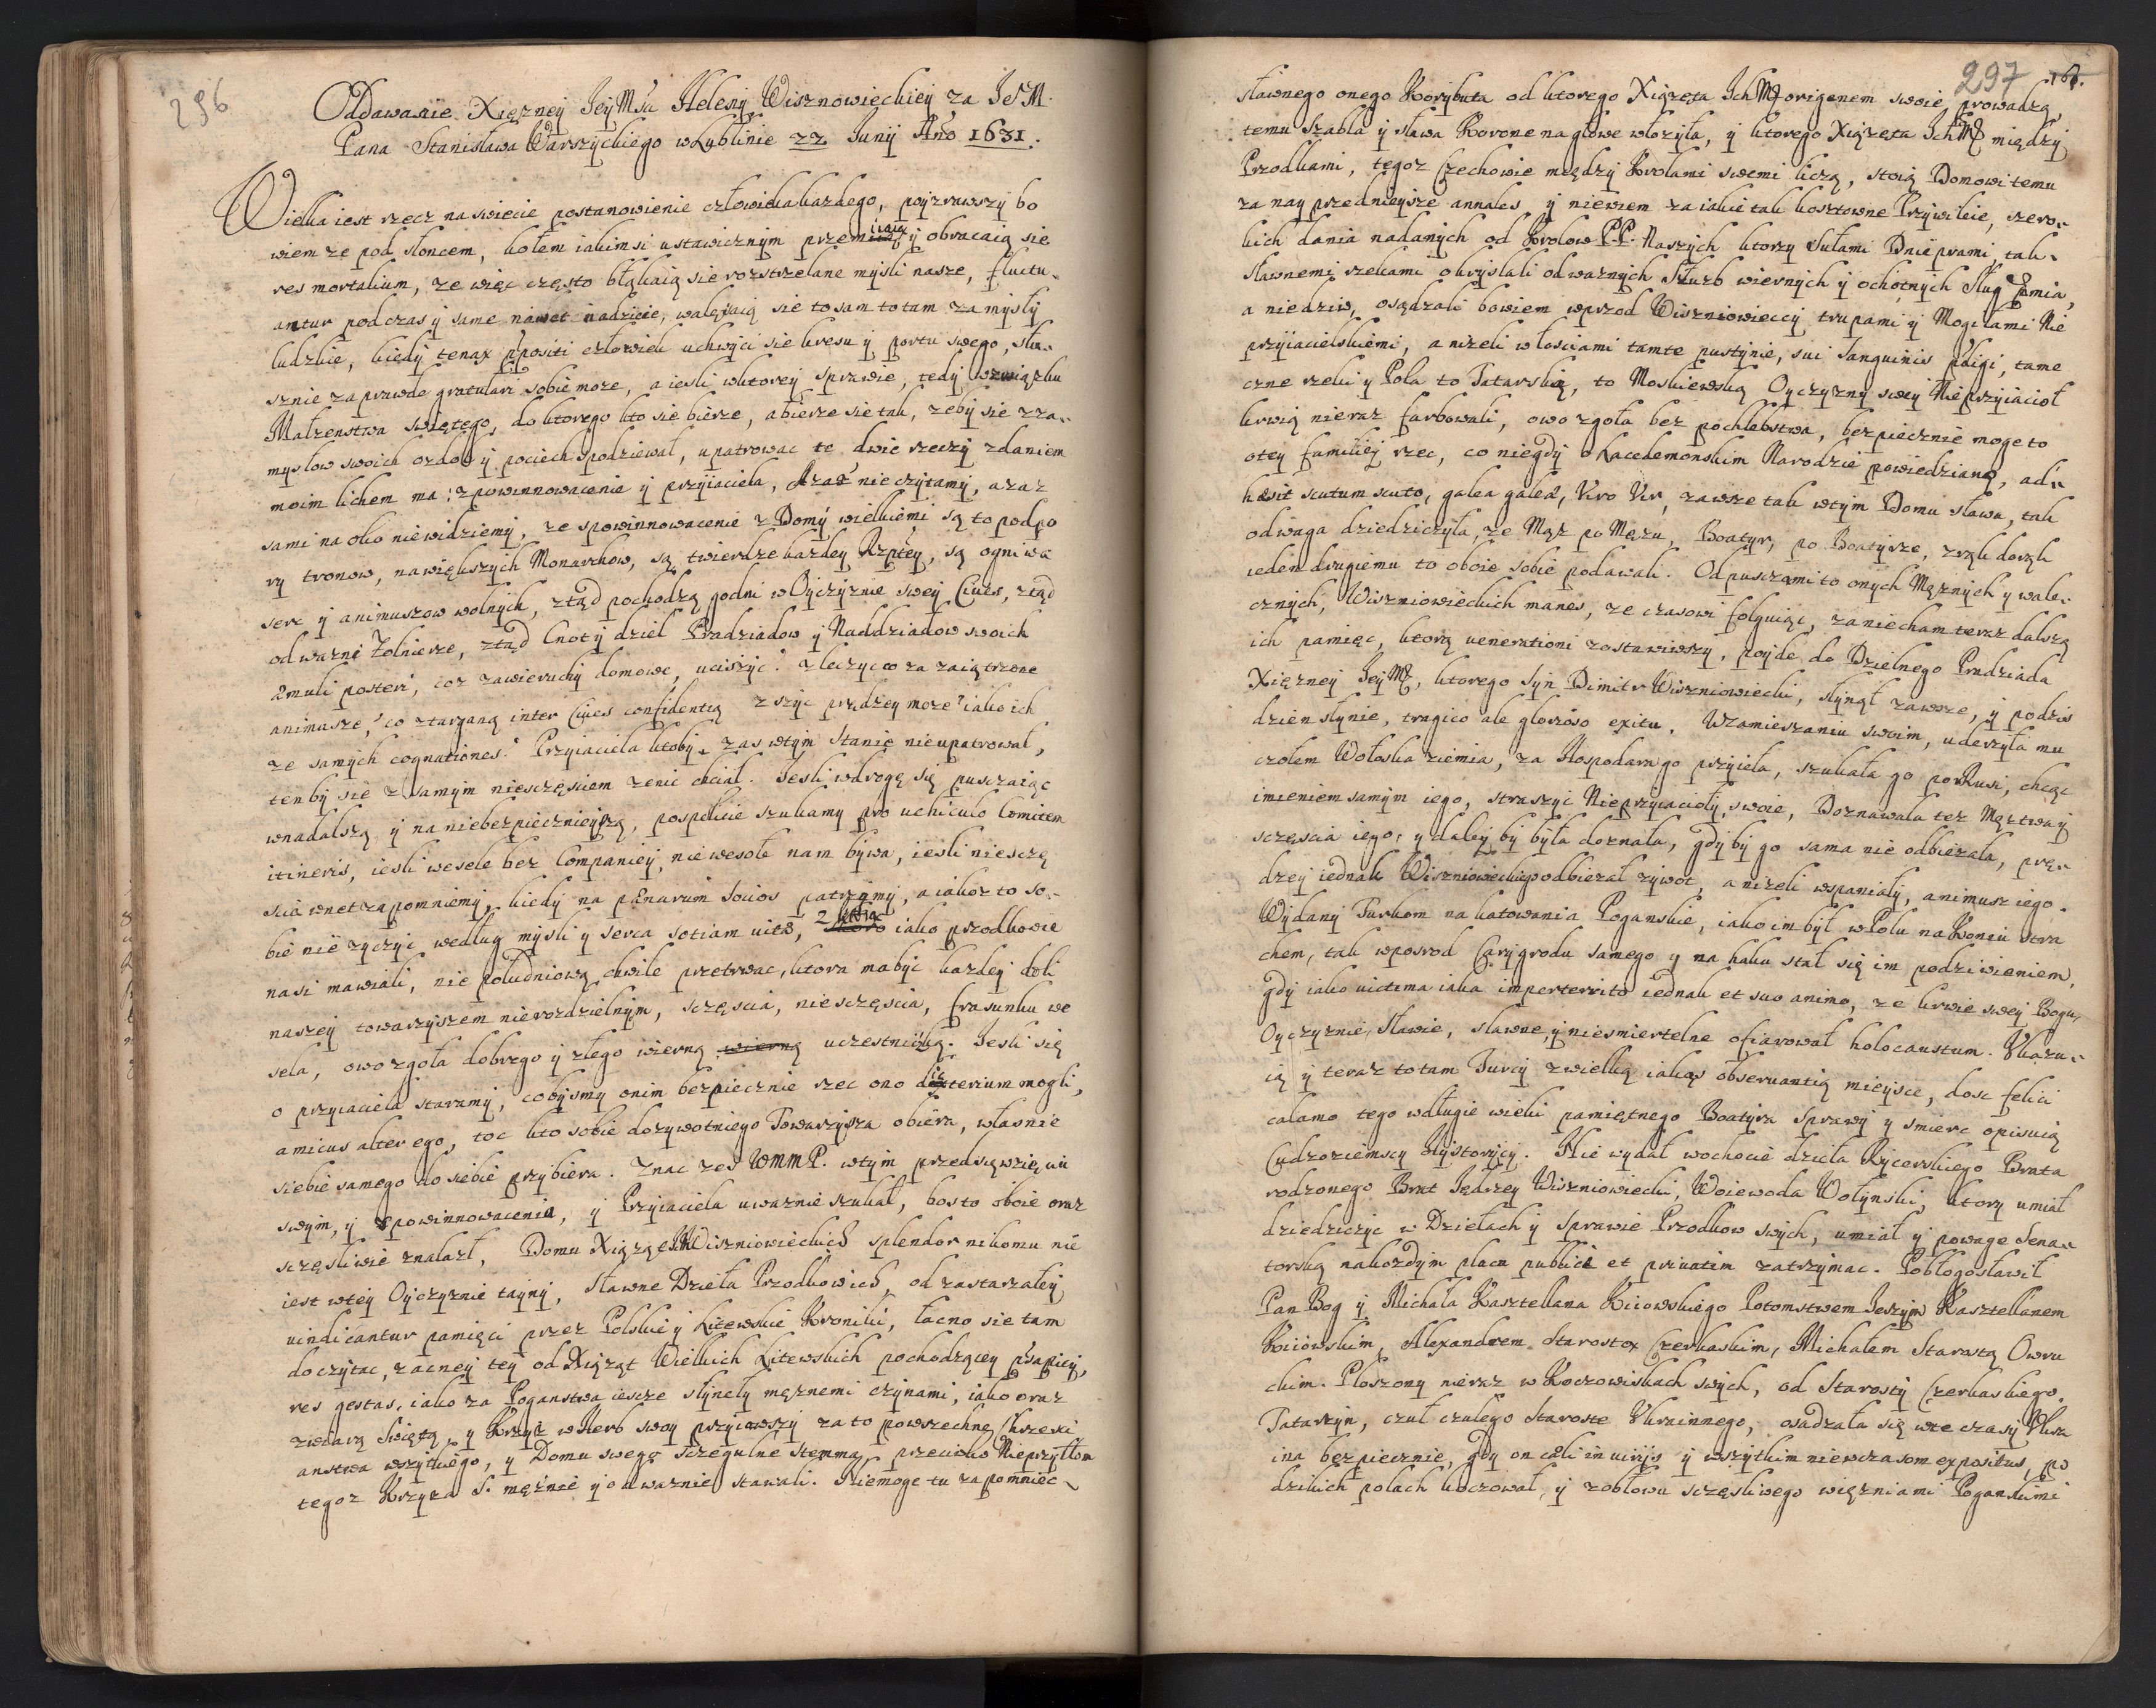 296
Oddawanie Xiężney JeyMści Heleny Wisznowieckiey za JeͦM.
Pana Stanisława Warszyckiego w Lublinie 22 Juny Año 1631.
Wielka iest rzecz na swiecie postanowienie człowieka kazdego, poyzrawszy bo
wiem ze pod słoncem, kołem iakimsi ustawicznym przemiiaią y obracaią się
res mortalium, ze więc często błąkaią się rozstrzelane mysli nasze, fluctu-
antur podczas y same nawet nadzieie, walęsaią się to sam to tam zamysły
ludzkie, kiedy tenax ppositi człowiek uchwyci się kresu y portu swego, słu-
sznie zaprawde gratulari sobie moze, a iesli w ktorey sprawie, tedy w związku
Małzenstwa swiętego, do ktorego kto się bierze, a bierze się tak, zeby się z za-
mysłow swoich ozdob y pociech spodziewał, upatrowac te dwie rzeczy zdaniem
moim lichem ma: zpowinnowacenie y przyiaciela, Azasz nie czytamy, azaz
sami na oko niewidziemy, ze spowinnowacenie z Domy wielkiemi, są to podpo
ry tronow, nawiększych Monarchow, są twierdze kazdey Rzptey, są ogniwa
serc y animuszow wolnych, ztąd pochodzą godni w Oyczyznie swey Cives, ztąd
odwazni Zołnierze, ztąd Cnoty dzieł Pradziadow y Naddziadow swoich
æmuli posteri, coz zawieruchy domowe, uciszyc? zleczyc co za zaiątrzone
animusze, co ztarganą inter Cives confidentią zszyc prędzey moze? iako ich
ze samych cognationes? Przyiaciela ktoby zas wtym Stanie nieupatrował,
ten by się z samym niesczęsciem zenic chciał. Jesli wdrogę się pusczaiąc
wnadalszą y na niebezpiecznieyszą, pospolicie szukamy pro vehiculo Comitem
itineris, iesli wesele bez Companiey, niewesołe nam bywa, iesli niesczę
scia wnet zapomniemy, kiedy na pænarum socios patrzymy, a iakoz to so-
bie nie zyczyc według mysli y serca sotiam vitæ, z ktorą iako przodkowie
nasi mawiali, nie południową chwile przetrwac, ktora ma byc kazdey doli
naszey towarzyszem nierozdzielnym, sczęscia, niesczęscia, frasunku we
sela, owo zgoła dobrego y złego wierną wierną uczestniczką. Jesli się
o przyiaciela staramy, cobysmy onim bezpiecznie rzec ono dicterium mogli,
amicus alter ego, toc kto sobie dozywotniego Towarzysza obiera, własnie
siebie samego do siebie przybiera. Znac zes WMMP. wtym przedsięwzięciu
swym, y zpowinnowacenia, y Przyiaciela uwaznie szukał, bos to oboie oraz
sczęsliwie znalazł, Domu Xiążąt Wiszniowieckich splendor nikomu nie
iest wtey Oyczyznie tayny, Sławne Dzieła Przodkow ich, od zastarzałey
vindicantur pamięci przez Polskie y Litewskie Kroniki, łacno się tam
doczytac, zacney tey od Xiążąt Wielkich Litewskich pochodzącey psapiey,
res gestas, iako za Poganstwa iescze słynęły męznemi czynami, iako oraz
zwiarą Swiętą, y Krzyż w Herb swoy przyiąwszy za to powszechne Chrzesci
anstwa wszytkiego, y Domu swego sczegulne Stemma, przeciwko Nieprzyłom
tegoz Krzyza S. męznie y odwaznie stawali. Niemoge tu zapomniec
297
sławnego onego Korybuta od ktorego Xiązęta IchMć originem swoie prowadzą,
temu szabla y sława Korone na głowe włozyła, y ktorego Xiązęta IchMć między
Przodkami, tegoz Czechowie między Krolami swemi liczą, stoią Domowi temu
za nay przednieysze annales, y niewiem za iakie tak kosztowne Przywileie, szero-
kich dania nadanych od Krolow P.P. Naszych ktorzy Sułami Dnieprami, tak-
Sławnemi rzekami okryslali odwaznych Słuzb wiernych y ochotnych Sług præmia,
a niedziw, osądzali bowiem wprzod Wiszniowieccy trupami y Mogiłami Nie
przyiacielskiemi, a nizeli włosciami tamte pustynie, sui sanguinis pdigi, tame
czne rzeki y Pola to Tatarską, to Moskiewską Oyczyzny swey Nieprzyiacioł
krwią nieraz farbowali, owo zgoła bez pochlebstwa, bezpiecznie moge to
otey familiey rzec, co niegdy o Lacedemonskim Narodzie powiedziano, ad-
hæsit scutum scuto, galea galeæ, Viro Vir, zawsze tak wtym Domu sława, tak
odwaga dziedziczyła, ze Mąż po Męzu, Boatyr, po Boatyrze, z rąk do rąk
ieden drugiemu to oboie sobie podawali. Odpusczą mi to onych Męznych y wale-
cznych, Wiszniowieckich manes, ze czasowi folguiąc, zaniecham teraz dalszą
ich pamięc, ktorą venerationi zostawiwszy, poyde do Dzielnego Pradziada
Xięzney JeyMć, ktorego Syn Dimitr Wiszniowiecki, słynął zawsze, y podzis
dzien słynie, tragico ale glorioso exitu. Wzamieszaniu swoim, uderzyła mu
czołem Wołoska ziemia, za Hospodara go przyieła, szukała go po Rusi, chcąc
imieniem samym iego, straszyc Nieprzyiacioły swoie, Doznawała tez Męztwa y
sczęscia iego, y daley by była doznała, gdyby go sama nie odbiezała, prę-
dzey iednak Wiszniowieckiego odbiezał zywot, a nizeli wspaniały, animusz iego.
Wydany Turkom na katowania Poganskie, iako im był w Polu na Koniu stra
chem, tak wposrod Carygrodu samego y na haku stał się im podziwieniem,
gdy iako victima iaka imperterrito iednak et suo animo, ze krwie swey Bogu,
Oyczyznie, Sławie, sławne, y niesmiertelne ofiarował holocaustum. Ukazu-
ią y teraz to tam Turcy z wielką iakąs observantią mieysce, dosc felici
calamo tego wdługie wieki pamiętnego Boatyra Sprawy y smierc opisuią
Cudzoziemscy Hystorycy. Nie wydał wochocie dzieła Rycerskiego Brata
rodzonego Brat Jędrzey Wiszniowiecki, Woiewoda Wołynski, ktory umiał
dziedziczyc w Dziełach y sprawie Przodkow swych, umiał y powage Sena-
torską nakozdym placu publicè et privatim zatrzymac. Pobłogosławił
Pan Bog y Michała Kasztellana Kiiowskiego Potomstwem Jeszym Kasztellanem
Kiiowskim, Alexandrem Starostą Czerkaskim, Michałem Starostą Owru
ckim. Płoszony nieraz w Koczowiskach swych, od Starosty Czerkaskiego,
Tatarzyn, czuł czułego Staroste Ukrainnego, osadzała się wte czasy Ukra
ina bezpiecznie, gdy on cœli iniurijs y wszytkim niewczasom expositus, po
dzikich polach koczował, y z obłowu sczęsliwego więzniami Poganskimi